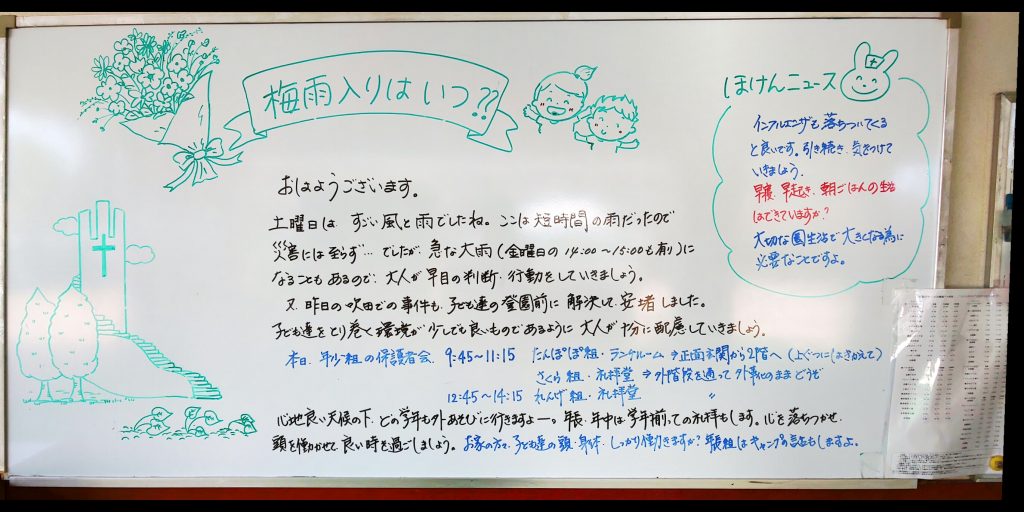 梅雨入りはいつ??
おはようございます。
土曜日は、すごい風と雨でしたね。ここは短時間の雨だったので
災害には至らず…でしたが、急な大雨(金曜日の14:00～15:00も有)に
なることもあるので、大人が早目の判断・行動をしていきましょう。
又、昨日の吹田での事件も、子ども達の登園前に解決して、安堵しました。
子ども達をとり巻く環境が少しでも良いものであるように大人が十分に配慮していきましょう。
本日、年少組の保護者会、9:45~11:15 たんぽぽ組・ランチルーム→正面玄関から2階へ(上ぐつにはきかえて)
さくら組・礼拝堂→外階段を通って外靴のままどうぞ
12:45~14:15 れんげ組・礼拝堂 〃
心地良い天候の下、どの学年も外あそびに行きますよー。年長・年中は学年揃っての礼拝もします。心を落ちつかせ、
頭を働かせて、良い時を過ごしましょう。お家の方々、子ども達の頭・身体・しっかり働きますか?年長組はキャンプの話もしますよ。
ほけんニュース
インフルエンザも落ちついてくる
と良いです。引き続き、気をつけて
いきましょう。
早寝、早起き、朝ごはんの生活
はできていますか?
大切な園生活で大きくなる為に
必要なことですよ。